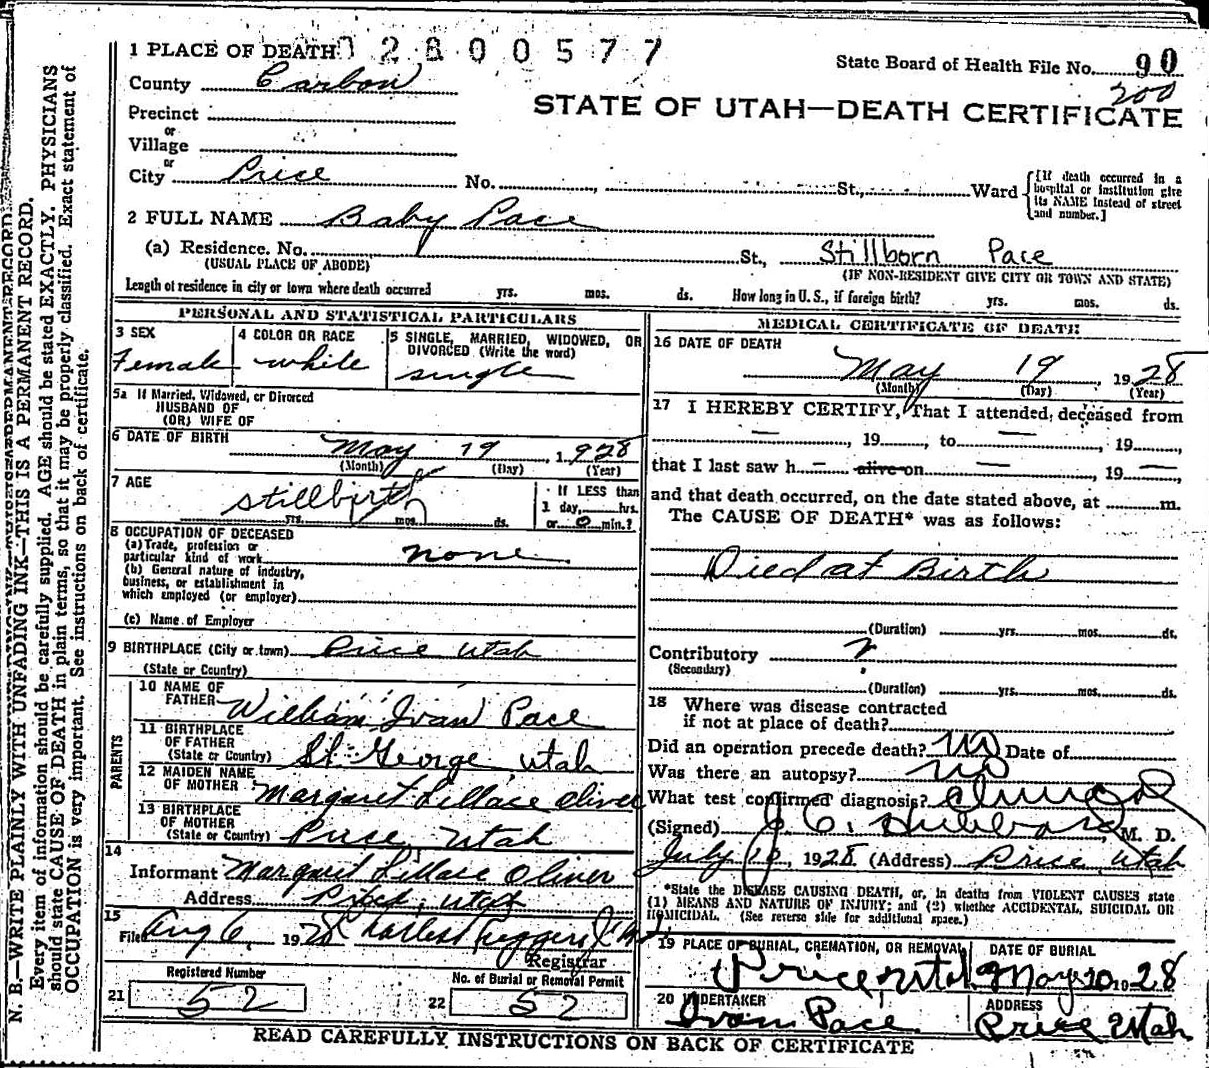 1 PLACE OF DEATH 2800577
State Board of Health File No. 90
County Carbon
200
STATE OF UTAH—DEATH CERTIFICATE
Precinct
or
Village
or
City Price No. St., Ward
{[If death occurred in a hospital or institution give its NAME instead of street and number.]
2 FULL NAME Baby Pace
(a) Residence. No. St., Stillborn Pace
(USUAL PLACE OF ABODE) (IF NON-RESIDENT GIVE CITY OR TOWN AND STATE)
Length of residence in city or town where death occurred yrs. mos. ds. How long in U. S., if foreign birth? yrs. mos. ds.
PERSONAL AND STATISTICAL PARTICULARS
3 SEX
Female
4 COLOR OR RACE
white
5 SINGLE, MARRIED, WIDOWED, OR
DIVORCED (Write the word)
single
5a If Married, Widowed, or Divorced
HUSBAND OF
(OR) WIFE OF
6 DATE OF BIRTH May 19, 1928
(Month) (Day) (Year)
7 AGE
stillbirth
yrs. mos. ds.
If LESS than
1 day, hrs.
or 0 min.?
8 OCCUPATION OF DECEASED
(a) Trade, profession or
particular kind of work none
(b) General nature of industry,
business, or establishment in
which employed (or employer)
(c) Name of Employer
9 BIRTHPLACE (City or town) Price Utah
(State or Country)
PARENTS
10 NAME OF
FATHER William Ivan Pace
11 BIRTHPLACE
OF FATHER
(State or Country) St. George, Utah
12 MAIDEN NAME
OF MOTHER Margaret Lillace Oliver
13 BIRTHPLACE
OF MOTHER
(State or Country) Price, Utah
14
Informant Margaret Lillace Oliver
Address Price, Utah
15
Filed Aug 6, 1928
Registrar
Registered Number
21 52
No. of Burial or Removal Permit
22 52
MEDICAL CERTIFICATE OF DEATH
16 DATE OF DEATH
May 19, 1928
(Month) (Day) (Year)
17 I HEREBY CERTIFY, That I attended deceased from
—, 19, to —, 19
that I last saw h— alive on —, 19 —,
and that death occurred, on the date stated above, at m.
The CAUSE OF DEATH* was as follows:
Died at Birth
(Duration) yrs. mos. ds.
Contributory ?
(Secondary)
(Duration) yrs. mos. ds.
18 Where was disease contracted
if not at place of death?
Did an operation precede death? no Date of
Was there an autopsy? no
What test confirmed diagnosis?
(Signed) J. C. Hubbard, M. D.
July 10, 1928 (Address) Price Utah
*State the DISEASE CAUSING DEATH, or, in deaths from VIOLENT CAUSES state
(1) MEANS AND NATURE OF INJURY; and (2) whether ACCIDENTAL, SUICIDAL OR
HOMICIDAL. (See reverse side for additional space.)
19 PLACE OF BURIAL, CREMATION, OR REMOVAL
Price, Utah
DATE OF BURIAL
May 20 1928
20 UNDERTAKER
Ivan Pace
ADDRESS
Price Utah
READ CAREFULLY INSTRUCTIONS ON BACK OF CERTIFICATE
N. B.—WRITE PLAINLY WITH UNFADING INK—THIS IS A PERMANENT RECORD.
Every item of information should be carefully supplied. AGE should be stated EXACTLY. PHYSICIANS
should state CAUSE OF DEATH in plain terms, so that it may be properly classified. Exact statement of
OCCUPATION is very important. See instructions on back of certificate.